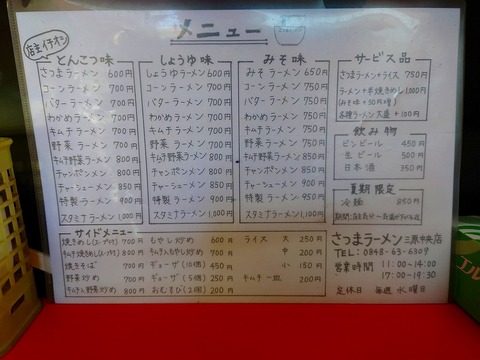 メニュー
店主イチオシ
とんこつ味
さつまラーメン 600円
コーンラーメン 700円
バターラーメン 700円
わかめラーメン 700円
キムチラーメン 700円
野菜ラーメン 700円
キムチ野菜ラーメン 800円
チャンポンメン 800円
チャーシューメン 850円
特製ラーメン 900円
スタミナラーメン 1,000円
しょうゆ味
しょうゆラーメン 600円
コーンラーメン 700円
バターラーメン 700円
わかめラーメン 700円
キムチラーメン 700円
野菜ラーメン 700円
キムチ野菜ラーメン 800円
チャンポンメン 800円
チャーシューメン 850円
特製ラーメン 900円
スタミナラーメン 1,000円
みそ味
みそラーメン 650円
コーンラーメン 750円
バターラーメン 750円
わかめラーメン 750円
キムチラーメン 750円
野菜ラーメン 750円
キムチ野菜ラーメン 850円
チャンポンメン 850円
チャーシューメン 900円
特製ラーメン 950円
スタミナラーメン 1,000円
サービス品
さつまラーメン+ライス 750円
ラーメン+半焼きめし 1,000円
(みそ味+50円増)
各種ラーメン大盛 +100円
飲み物
ビンビール 450円
生ビール 500円
日本酒 350円
夏期限定
冷麺 850円
サイドメニュー
焼きめし(スープ付) 700円
キムチ焼きめし(スープ付) 800円
焼きそば 700円
野菜炒め 700円
キムチ入野菜炒め 800円
もやし炒め 600円
キムチ入もやし炒め 700円
ギョーザ(10個) 450円
ギョーザ(5個) 250円
おむすび(2個) 200円
ライス 大 250円
中 200円
小 150円
キムチ一皿 200円
さつまラーメン 三原中央店
TEL:0848-63-6309
営業時間 11:00~14:00
17:00~19:30
定休日 毎週水曜日